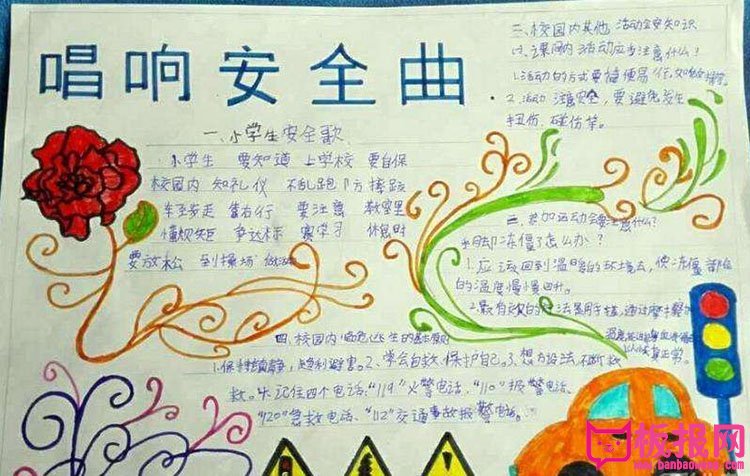 唱响安全曲
一、小学生安全歌
小学生 要知道 上学校 要自保
校园内 知礼仪 不乱跑 防摔跤
靠右行 要注意 教室里
懂规矩 争达标 实学习 休息时
要放松 到操场 做
二、校园内其他活动安知识
1、课间活动应当注意什么?
1.活动的方式要简便易行,如做操等。
2.活动 注意安全,要避免发生
扭伤、碰伤等。
三、参加运动会要注意什么?
手脚冻僵了怎么办?
1.应该回到温暖的环境去,使冻僵部位
的温度慢慢回升。
2.最有效的方法是用手搓,通过摩擦
正常。
四、校园内 逃生的基本原则
1.保持镇静,趋利避害。2、学会自救,保护自己。3、想方设法不断求
救。4、记住四个电话:"119"火警电话、"110"报警电话、
"120"急救电话、"112"交通事故报警电话。
板报网
www.banbaowang.com